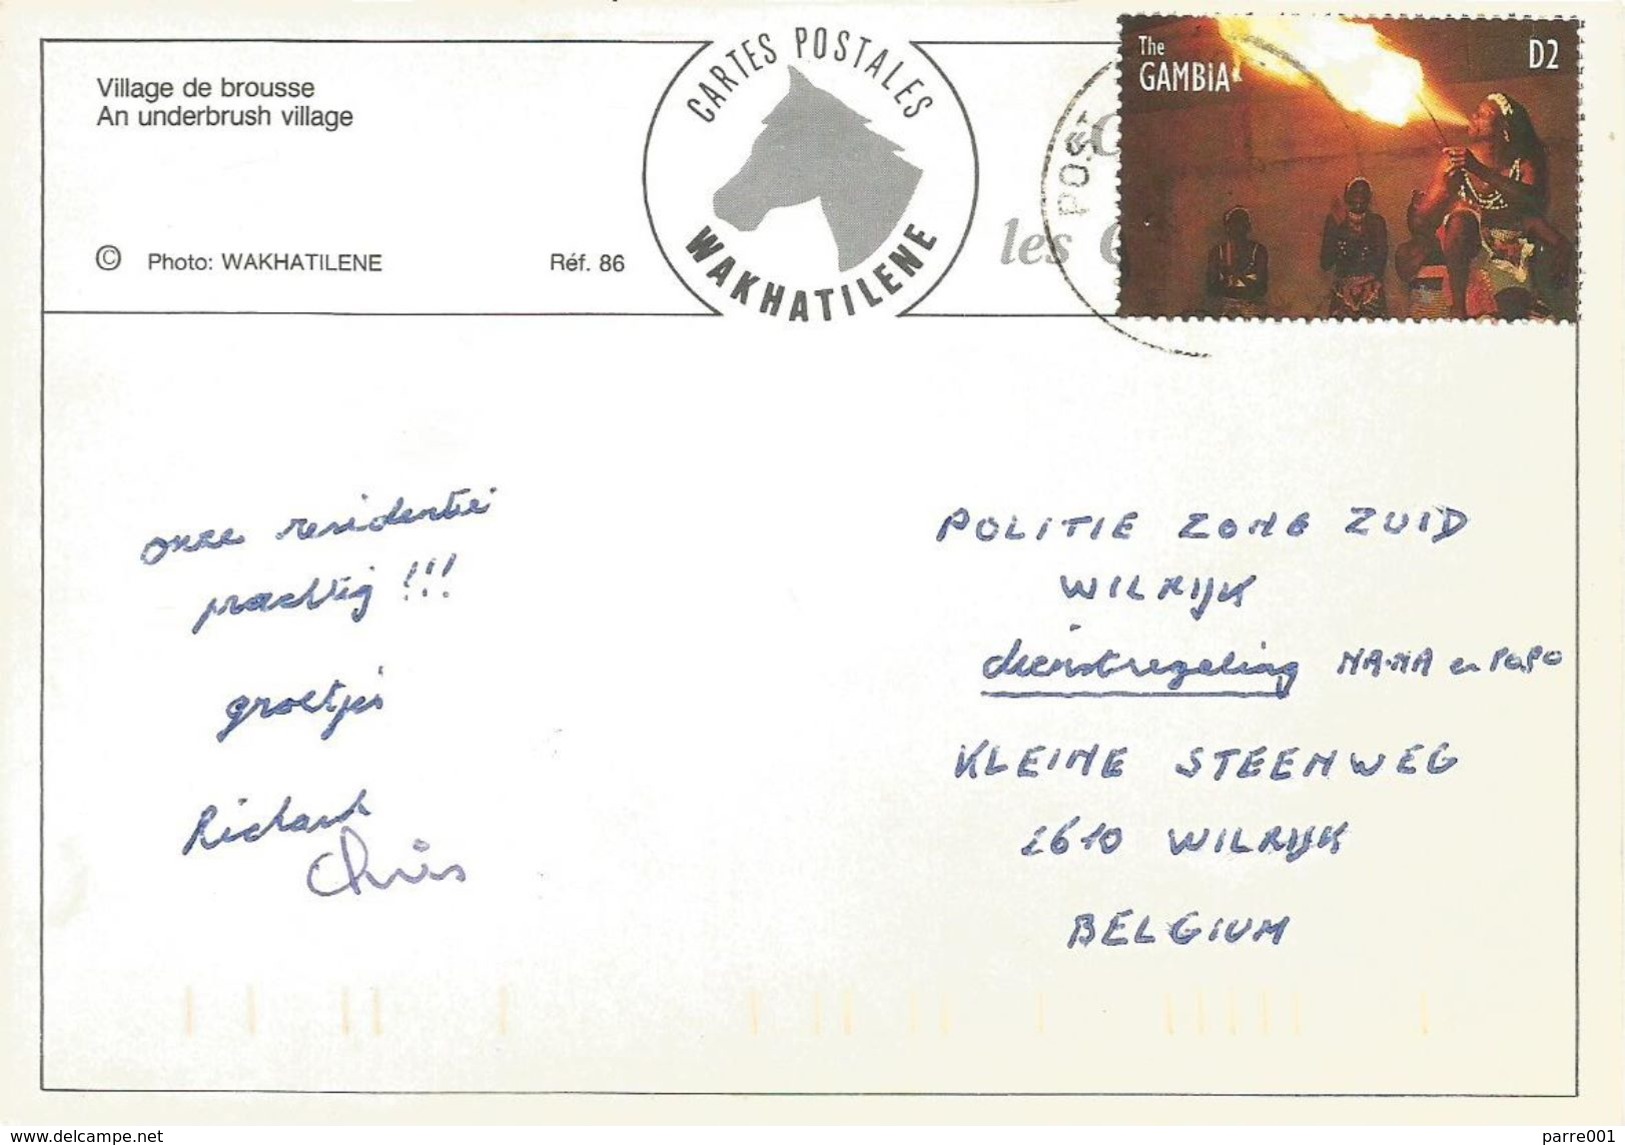 Village de brousse
An underbrush village
© Photo: WAKHATILENE Réf. 86
CARTES POSTALES
WAKHATILENE
les
POST
The
GAMBIA
D2
onze residentie
prachtig !!!
groetjes
Richard
Chris
POLITIE ZONE ZUID
WILRIJK
dienstregeling MA-MA en PAPO
KLEINE STEENWEG
2610 WILRIJK
BELGIUM
www.delcampe.net
parre001